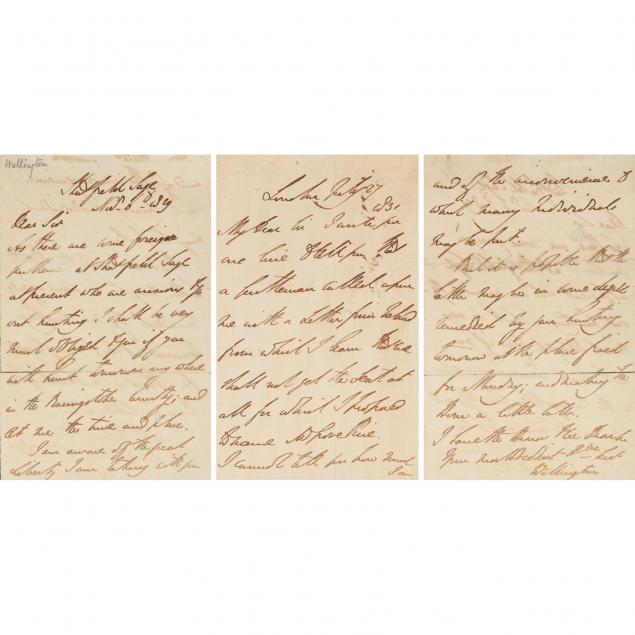 Wellington
Stratfield Saye
Nov. 6th 1829
Dear Sir
As there are some foreign
gentlemen at Stratfield Saye
at present who are anxious to go
out hunting I shall be very
much obliged to you if you
will hunt tomorrow any where
in the Basingstoke Country; and
let me the time and place.
I am aware of the great
Liberty I am taking with you
and of the inconvenience to
which many Individuals
may be put.
But it is possible that the
latter may be in some degree
remedied by your hunting
tomorrow at the place fixed
for Monday; and making the
Hour a little later.
I have the Honor to be
Your most obedient
Wellington
London July 27
1831
My Dear Sir I wrote you
one line
a Gentleman called upon
me with a Letter from
from which I learn
shall not get the Seat at
all for which I proposed
to
I cannot tell you how much
I am